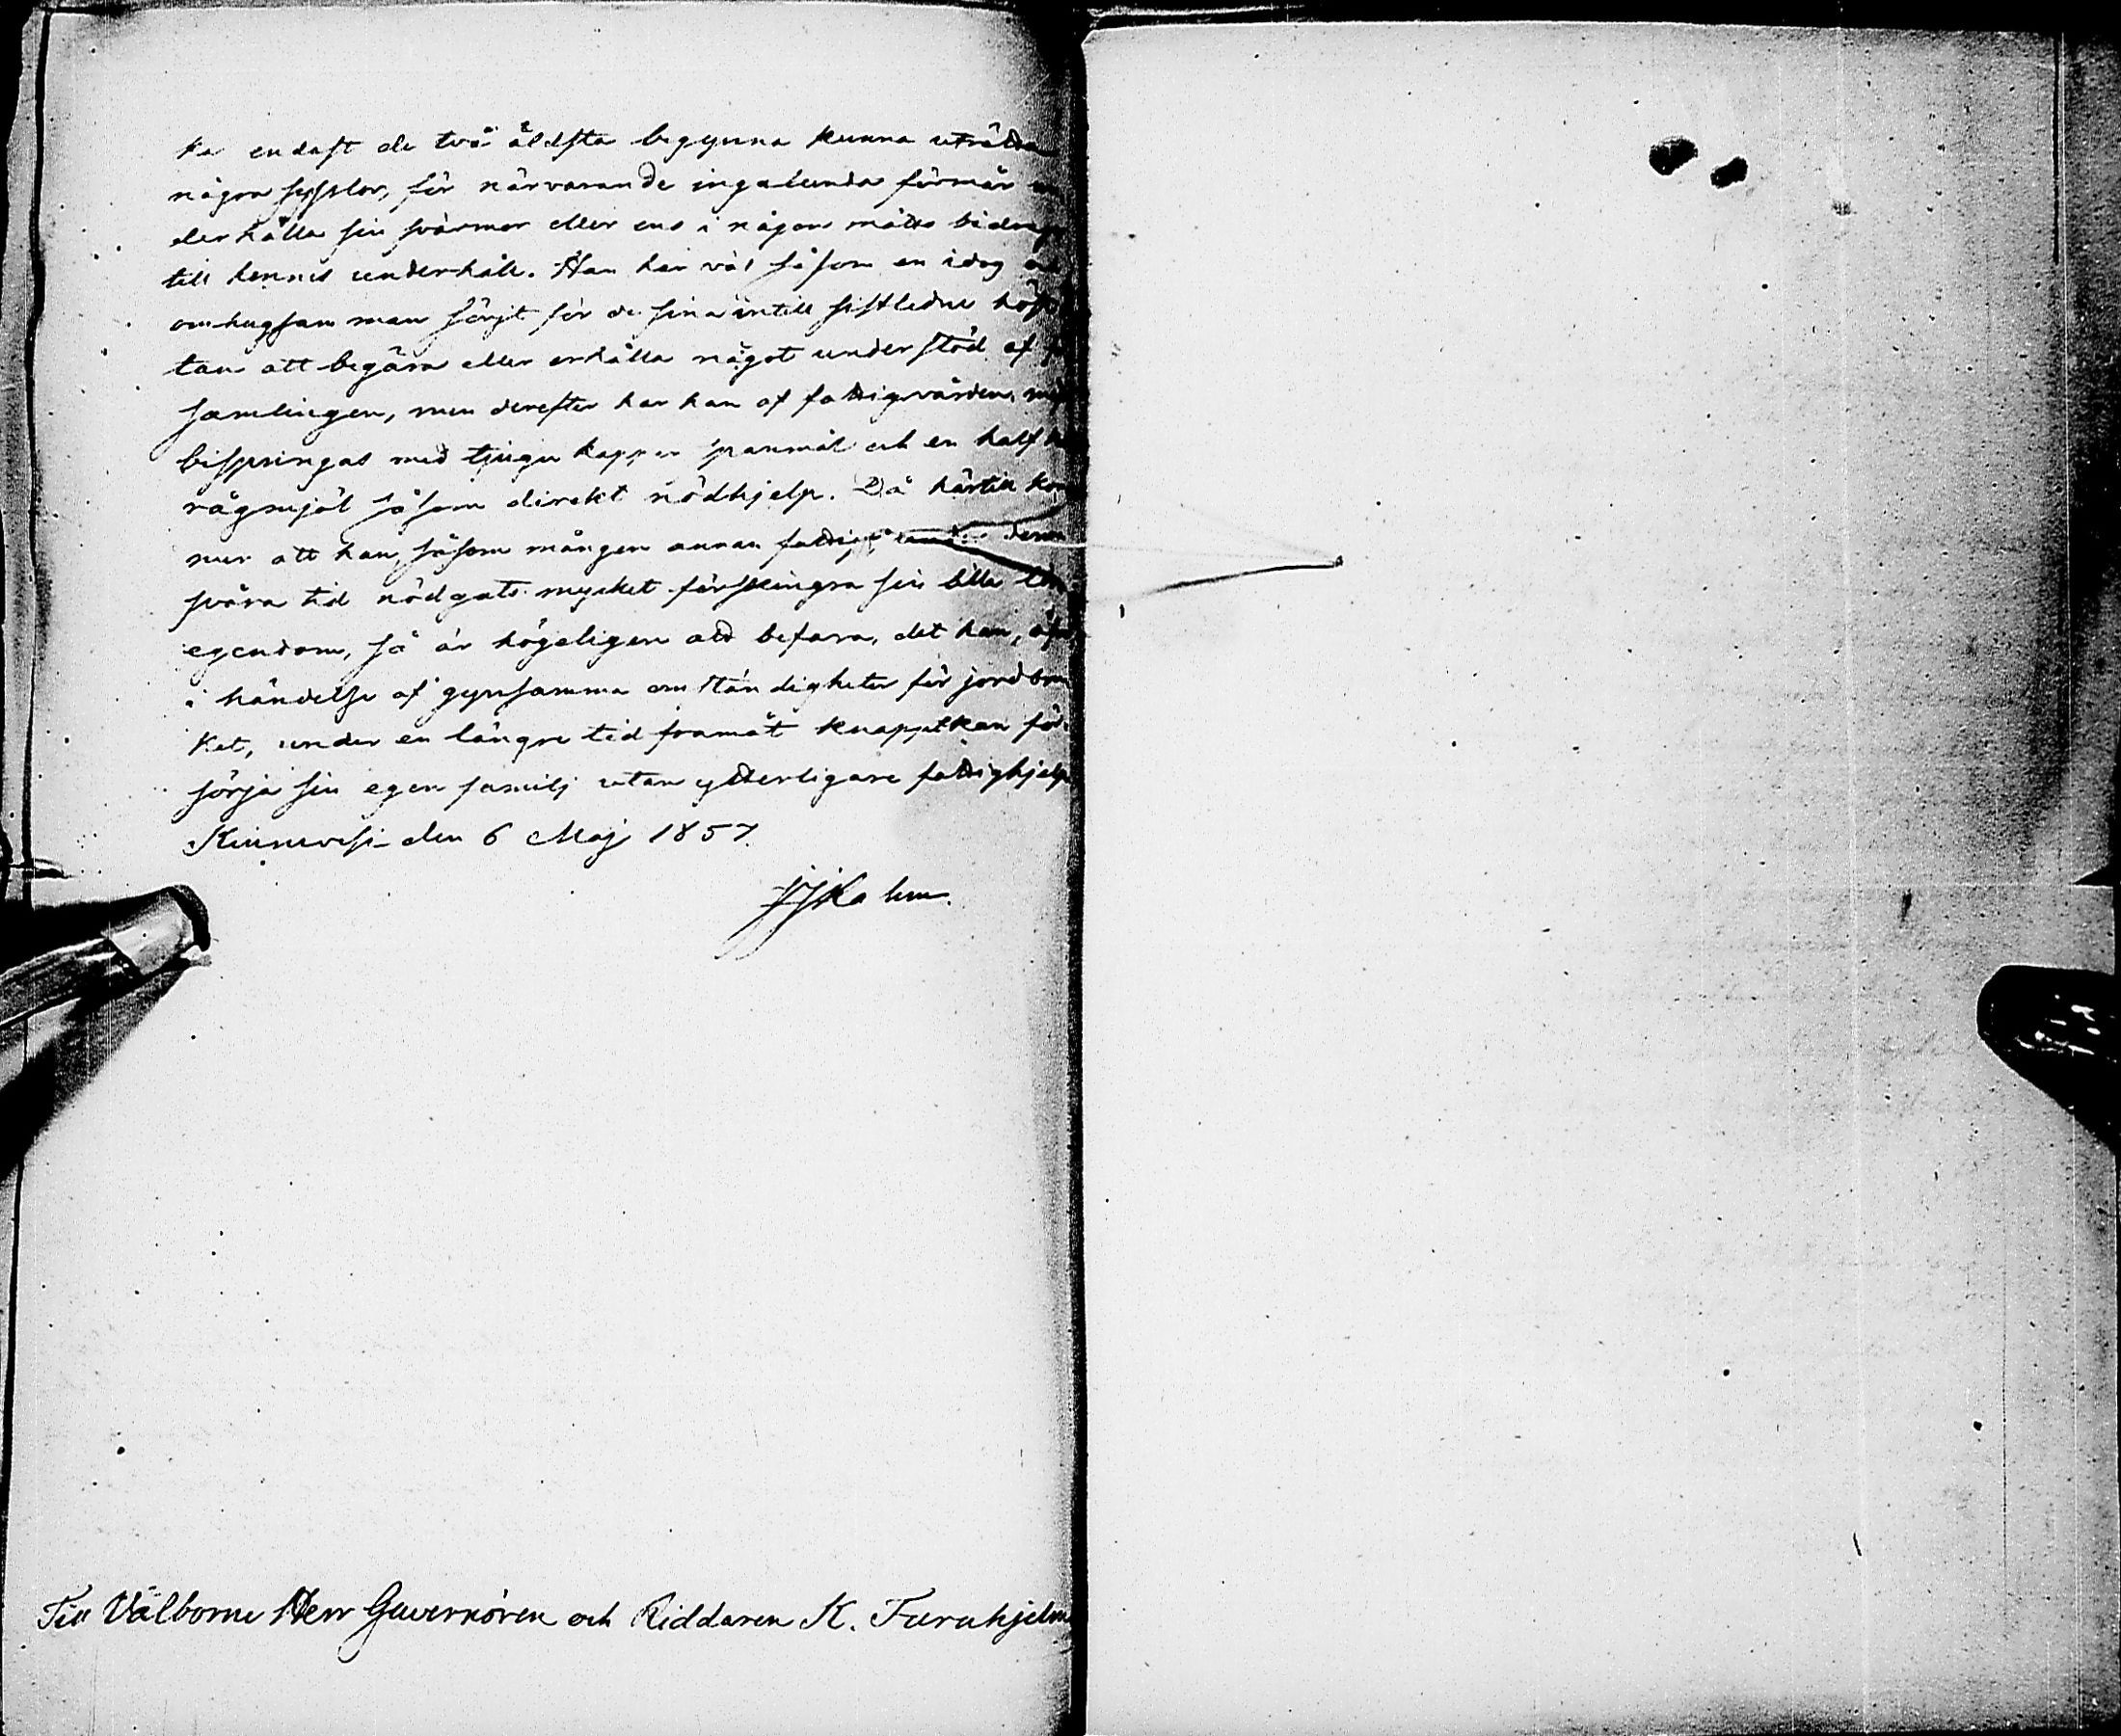 ka endast de två äldsta begynna kunna uträtta
några sysslor, för närvarande ingalunda förmår un
derhålla sin svärmor eller ens i någon måtto bidraga
till hennes underhåll. Han har väl såsom en idog och
omhugsam man sörjt för de sina intill sistledne höst
tan att begära eller erhålla något understöd af
samlingen, men derefter har han af fattigvården
bispringas med tjugu kappar spanmål och en half
rågmjöl såsom direkt nödhjelp. Då härtill kom
mer att han, såsom mången annan fattig denna
svåra tid nödgats mycket förskingra sin lilla lös
egendom, så är högeligen att befara, det han, äfven
i händelse af gynsamma omständigheter för jordbru
ket, under en längre tid framåt knappt kan för
sörja sin egen familj utan ytterligare fattighjelp
Kiuruvesi den 6 Maj 1857.
Till Välborne Herr Guvernören och Riddaren K. Furuhjelm